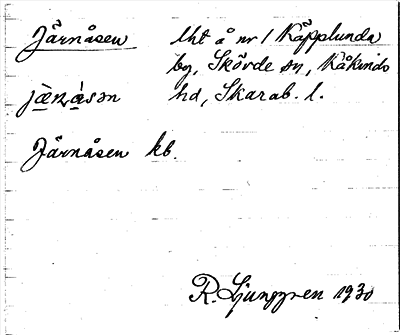 Järnåsen lht å nr 1 Käpplunda
by, Skövde sn, Kåkinds
jæṇåsən hd, Skarab. l.
Järnåsen kb.
R. Ljunggren 1930